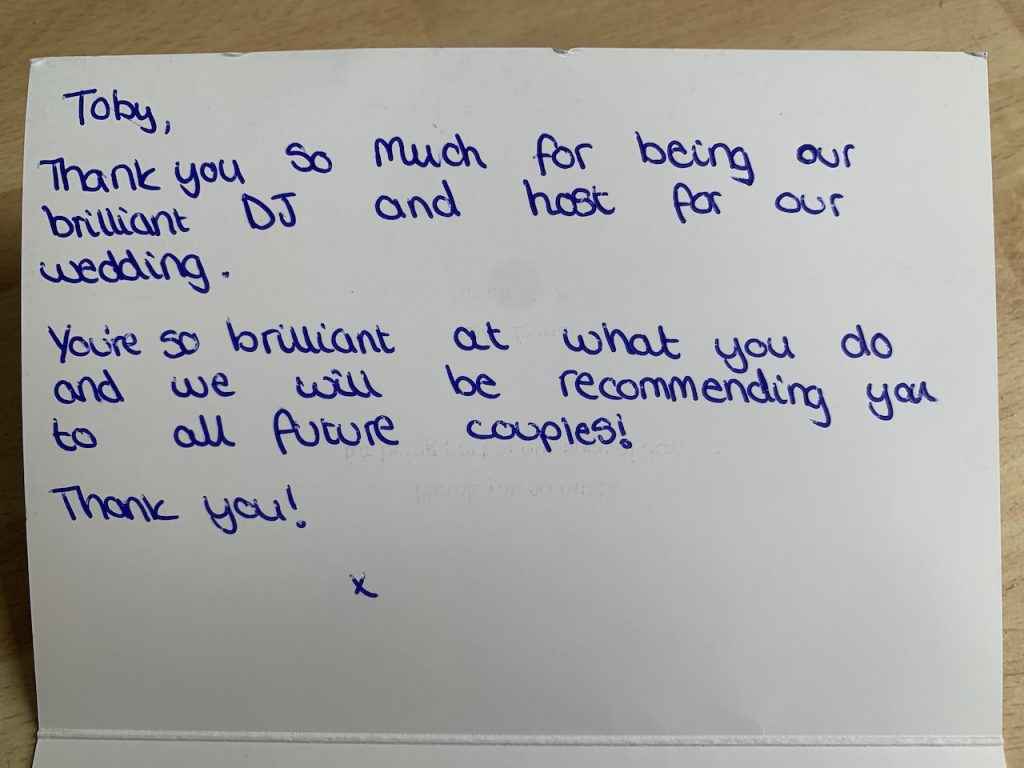 Toby,
Thank you so much for being our
brilliant DJ and host for our
wedding.
You're so brilliant at what you do
and we will be recommending you
to all future couples!
Thank you!
x